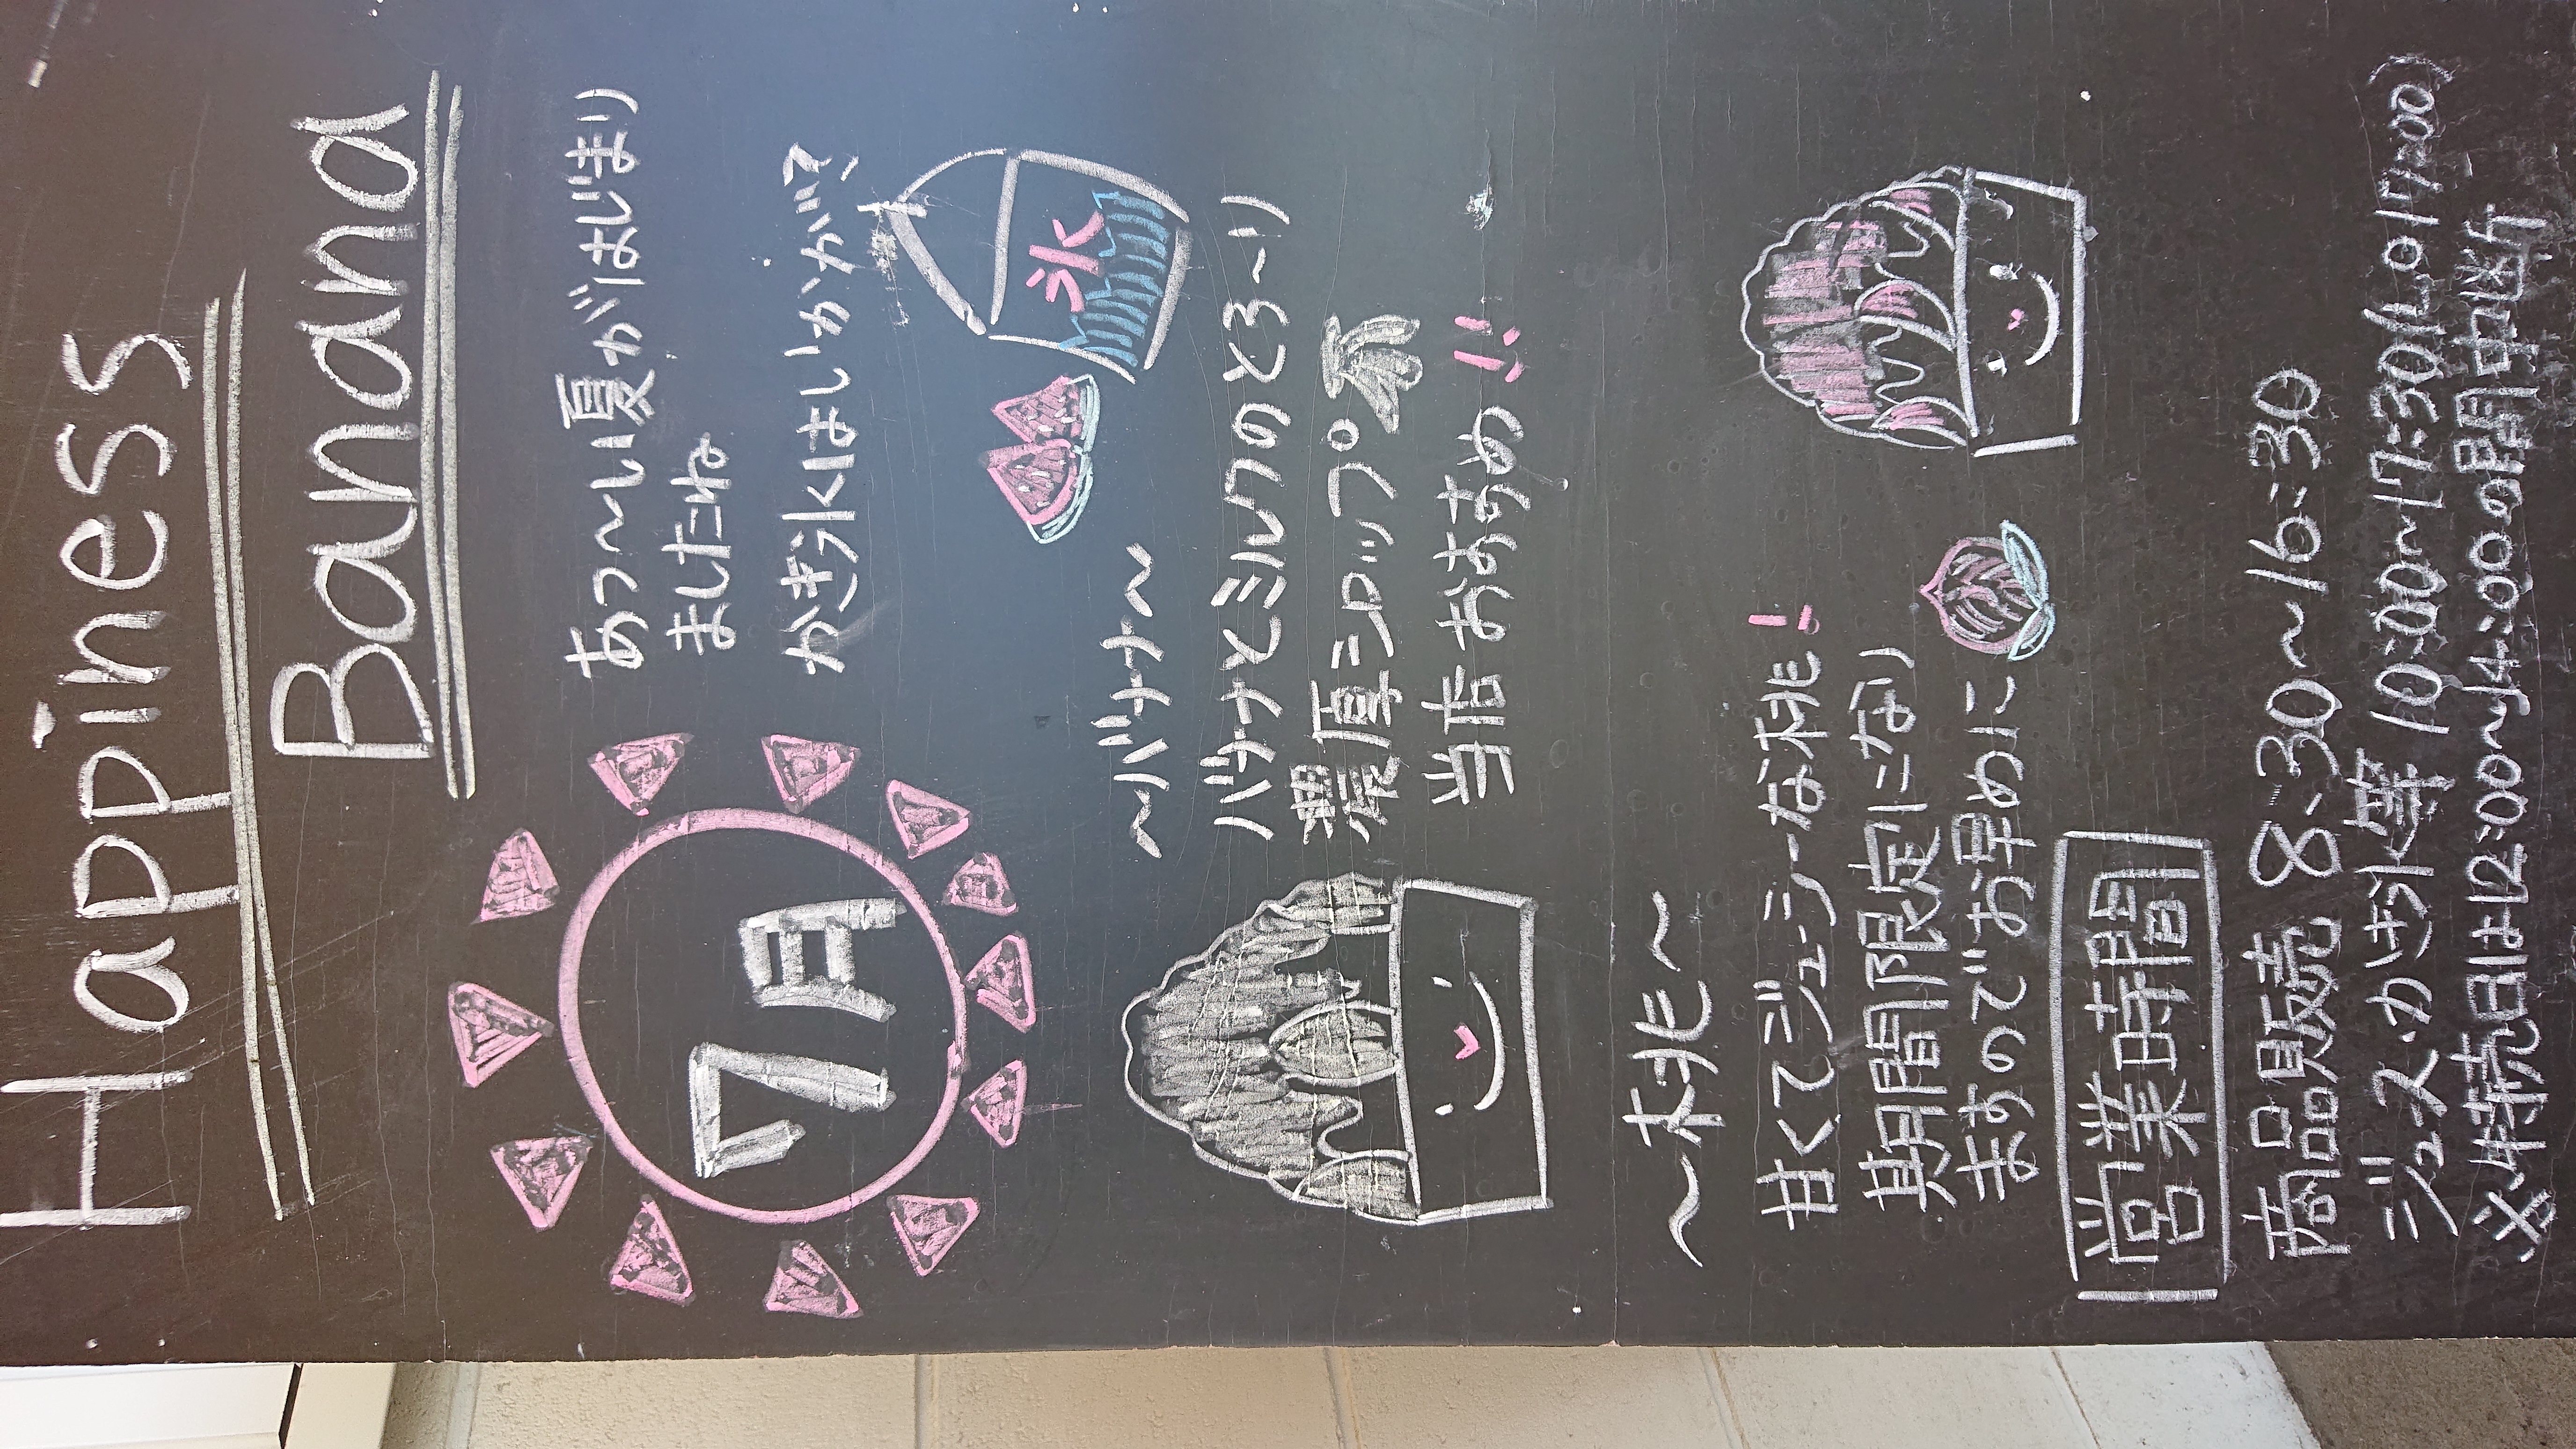 Happiness
Banana
7月
あつ〜い夏がはじまり
ましたね
かき氷はいかが??
氷
〜バナナ〜
バナナとミルクのとろ〜り
濃厚シロップ
当店おすすめ!!
〜桃〜
甘くてジューシーな桃!
期間限定になり
ますのでお早めに
営業時間
商品販売 8:30〜16:30
ジュース・かき氷等 10:00〜17:30(L.O 17:00)
※特売日は12:00〜14:00の間中断